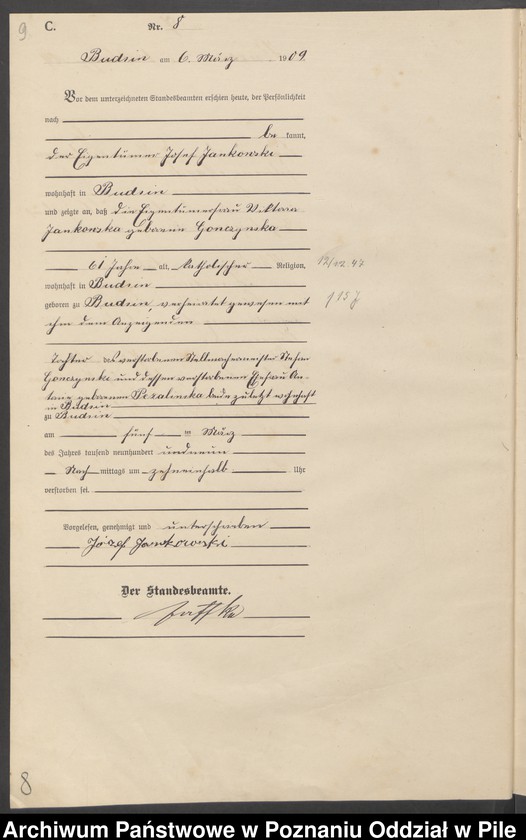 9
C.
Nr. 8
Budsin am 6. März 1909.
Vor dem unterzeichneten Standesbeamten erschien heute, der Persönlichkeit
nach
be kannt,
der Eigentümer Josef Jankowski
wohnhaft in Budsin
und zeigte an, daß die Eigentümerfrau Viktoria
Jankowska geborene Gonczynska
61 Jahre alt, katholischer Religion,
12/12. 47
wohnhaft in Budsin
geboren zu Budsin, verheiratet gewesen mit
ihm dem Anzeigenden
Tochter des verstorbenen Stellmachermeister Stefan
Gonczynski und dessen verstorbenen Ehefrau An-
geborenen beide zuletzt wohnhaft
in Budsin
zu Budsin
am fünf ten März
des Jahres tausend neunhundert und neun
Nach mittags um zehneinhalb Uhr
verstorben sei.
Vorgelesen, genehmigt und unterschrieben
Józef Jankowski
Der Standesbeamte.
8
Archiwum Państwowe w Poznaniu Oddział w Pile